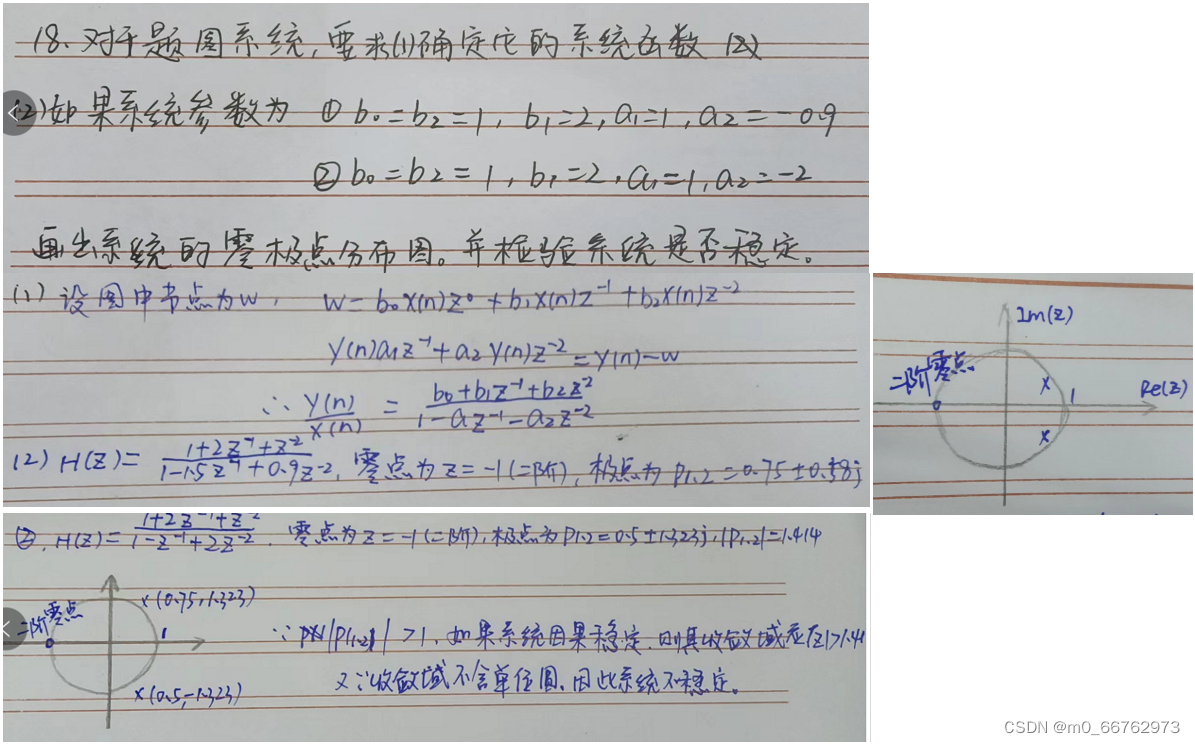 18. 对于题图系统, 要求(1)确定它的系统函数 (2)
(2)如果系统参数为 ① b₀=b₂=1, b₁=2, a₁=1, a₂=-0.9
② b₀=b₂=1, b₁=2, a₁=1, a₂=-2
画出系统的零极点分布图。并检验系统是否稳定。
(1) 设图中节点为w, W=b₀x(n)z⁰+b₁x(n)z⁻¹+b₂x(n)z⁻²
y(n)a₁z⁻¹+a₂y(n)z⁻²=y(n)-w
∴ y(n)/x(n) = (b₀+b₁z⁻¹+b₂z²)/(1-a₁z⁻¹-a₂z⁻²)
(2) H(z)= (1+2z⁻¹+z⁻²)/(1-1.5z⁻¹+0.9z⁻²), 零点为z=-1(二阶), 极点为p₁,₂=0.75±0.58j
Im(z)
二阶零点
1
Re(z)
②. H(z)= (1+2z⁻¹+z⁻²)/(1-z⁻¹+2z⁻²). 零点为z=-1(二阶), 极点为p₁,₂=0.5±1.323j, |p₁,₂|=1.414
×(0.75,1.323)
二阶零点
1
×(0.5,-1.323)
∵ |p₁,₂|>1, 如果系统因果稳定, 则其收敛域应|z|>1.41
又∵收敛域不含单位圆, 因此系统不稳定。
CSDN @m0_66762973